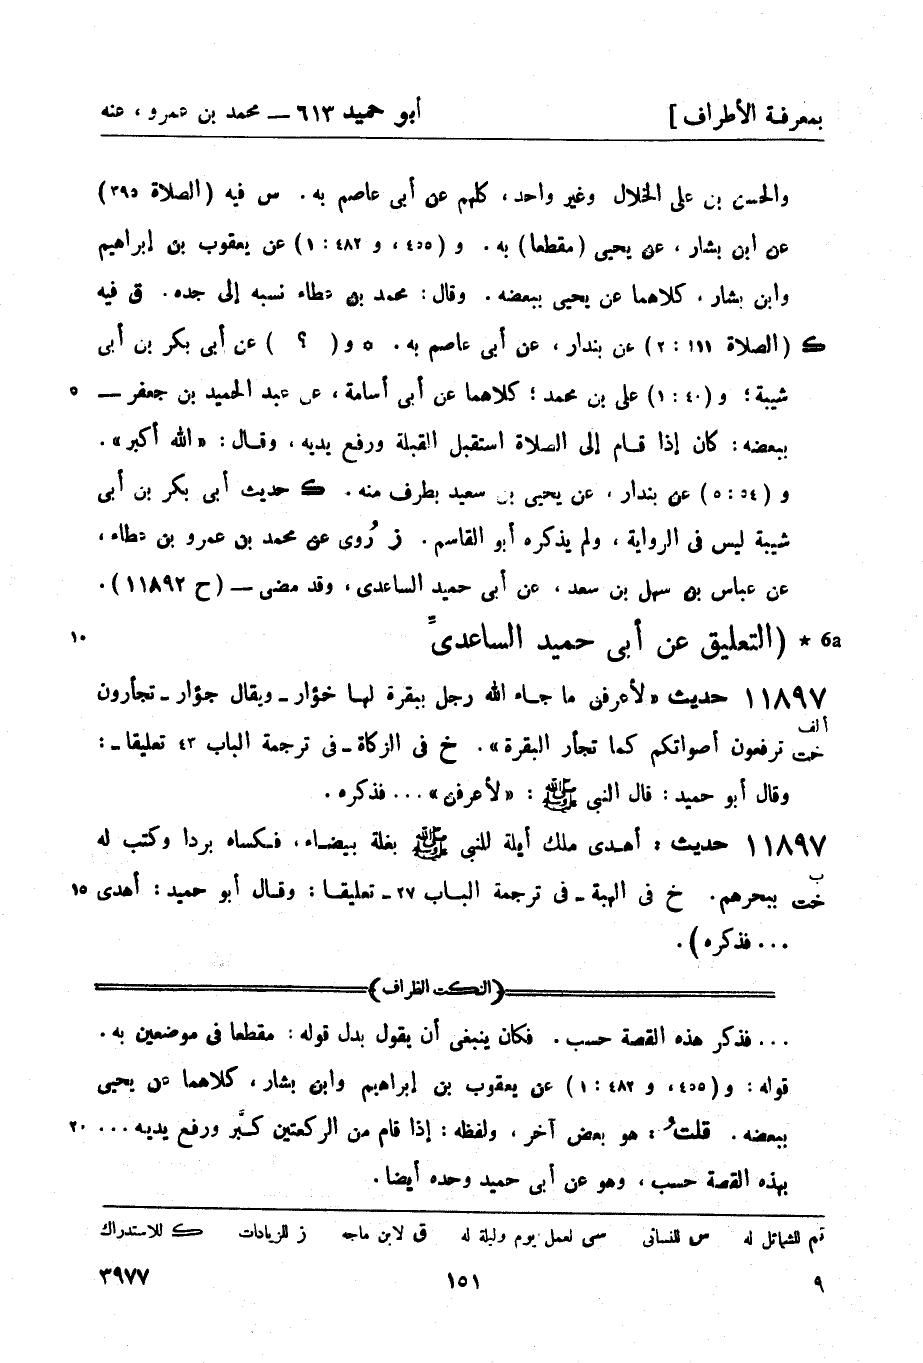 بمعرفة الأطراف] أبو حميد ٦١٣ — محمد بن عمرو، عنه
والحسن بن على الخلال وغير واحد، كلهم عن أبى عاصم به. س فيه (الصلاة ٣٩٥)
عن ابن بشار، عن يحيى (مقطعا) به. و (٤٥٥، و ٤٨٢ : ١) عن يعقوب بن إبراهيم
وابن بشار، كلاهما عن يحيى ببعضه. وقال: محمد بن عطاء نسبه إلى جده. ق فيه
ك (الصلاة ١١١ : ٢) عن بندار، عن أبى عاصم به. ٥ و( ؟ ) عن أبى بكر بن أبى
شيبة؛ و (٤٠ : ١) على بن محمد؛ كلاهما عن أبى أسامة، عن عبد الحميد بن جعفر — ٥
ببعضه: كان إذا قام إلى الصلاة استقبل القبلة ورفع يديه، وقال: «الله أكبر».
و (٥٤ : ٥) عن بندار، عن يحيى بن سعيد بطرف منه. ك حديث أبى بكر بن أبى
شيبة ليس فى الرواية، ولم يذكره أبو القاسم. ز رُوى عن محمد بن عمرو بن عطاء،
عن عباس بن سهل بن سعد، عن أبى حميد الساعدى، وقد مضى — (ح ١١٨٩٢).
6a * (التعليق عن أبى حميد الساعدى ١٠
١١٨٩٧ حديث «لأعرفن ما جاء الله رجل ببقرة لها خؤار ـ ويقال جؤار ـ تجأرون
ألف
خت ترفعون أصواتكم كما تجأر البقرة». خ فى الزكاة ـ فى ترجمة الباب ٤٣ تعليقا ـ :
وقال أبو حميد: قال النبى ﷺ : «لأعرفن» ... فذكره.
١١٨٩٧ حديث : أهدى ملك أيلة للنبى ﷺ بغلة بيضاء، فكساه بردا وكتب له
ب
خت ببحرهم. خ فى الهبة ـ فى ترجمة الباب ٢٧ ـ تعليقا: وقال أبو حميد: أهدى ١٥
... فذكره).
(النكت الظراف)
... فذكر هذه القصة حسب. فكان ينبغى أن يقول بدل قوله: مقطعا فى موضعين به.
قوله: و (٤٥٥، و ٤٨٢ : ١) عن يعقوب بن إبراهيم وابن بشار، كلاهما عن يحيى
ببعضه. قلتُ: هو بعض آخر، ولفظه: إذا قام من الركعتين كبَّر ورفع يديه ... ٢٠
بهذه القصة حسب، وهو عن أبى حميد وحده أيضا.
تم للشمائل له س للنسائى سى لعمل يوم وليلة له ق لابن ماجه ز للزيادات ك للاستدراك
٩ ١٥١ ٣٩٧٧